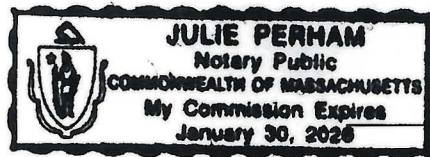 JULIE PERHAM
Notary Public
COMMONWEALTH OF MASSACHUSETTS
My Commission Expires
January 30, 2026